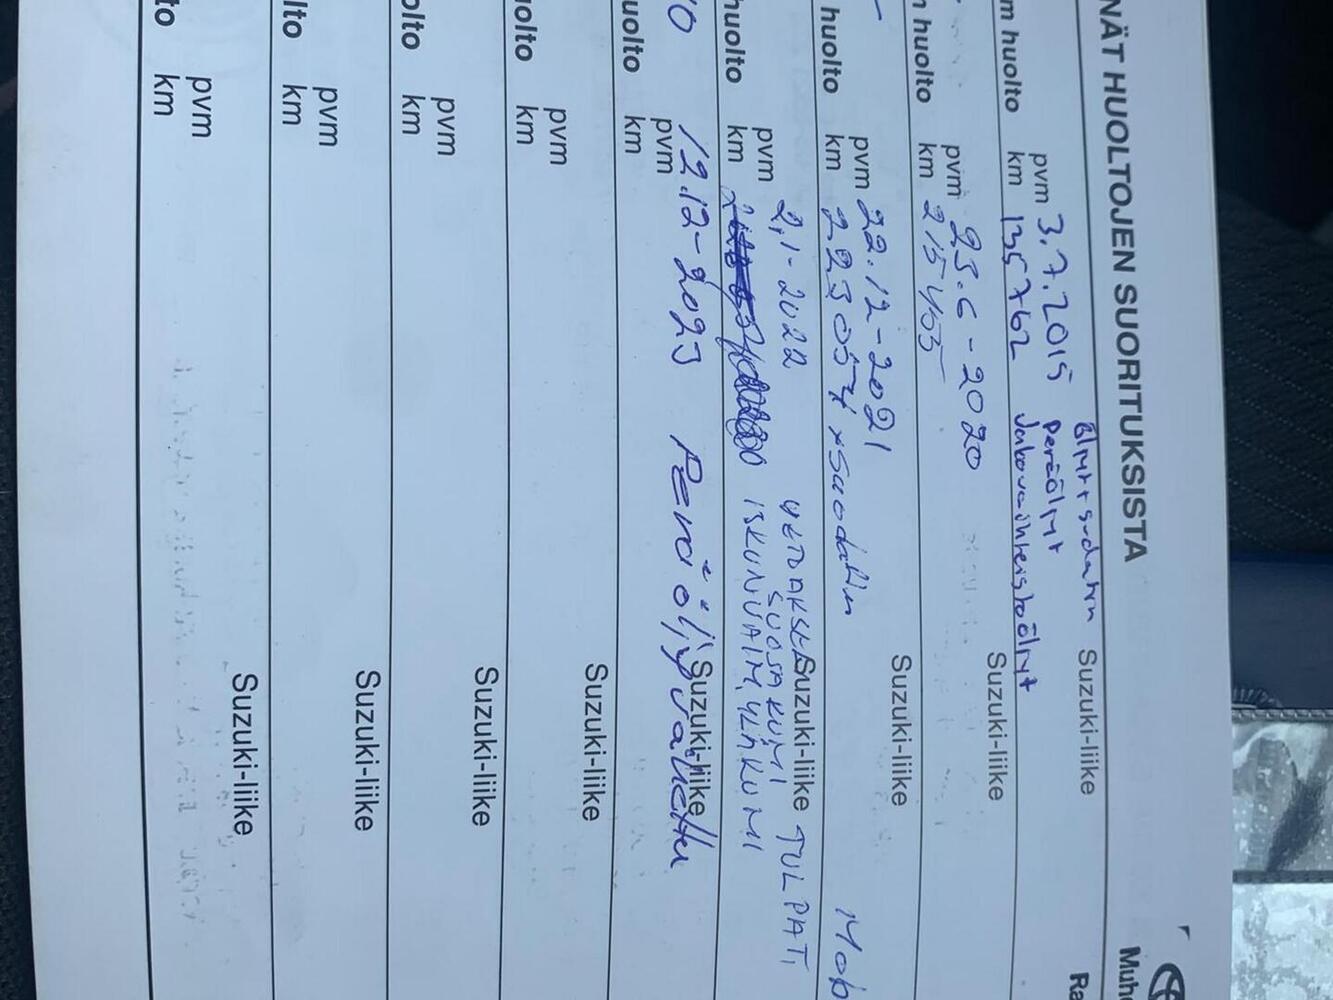 NÄT HUOLTOJEN SUORITUKSISTA
Muh
Ra
m huolto pvm 3.7.2015 Suzuki-liike
km 135762
Peräöljyt
n huolto pvm 23.6-2020 Suzuki-liike
km 215403
huolto pvm 22.12-2021 Suzuki-liike
km 223054 + Suodatin Mob
huolto pvm 2.1-2022 Suzuki-liike TULPAT,
SUOJAKUMI
km ISKUNVAIM, YLÄKUMI
uolto pvm 12.12-2023 Peräöljy vaihettu Suzuki-liike
km
uolto pvm Suzuki-liike
km
olto pvm Suzuki-liike
km
lto pvm Suzuki-liike
km
to pvm Suzuki-liike
km